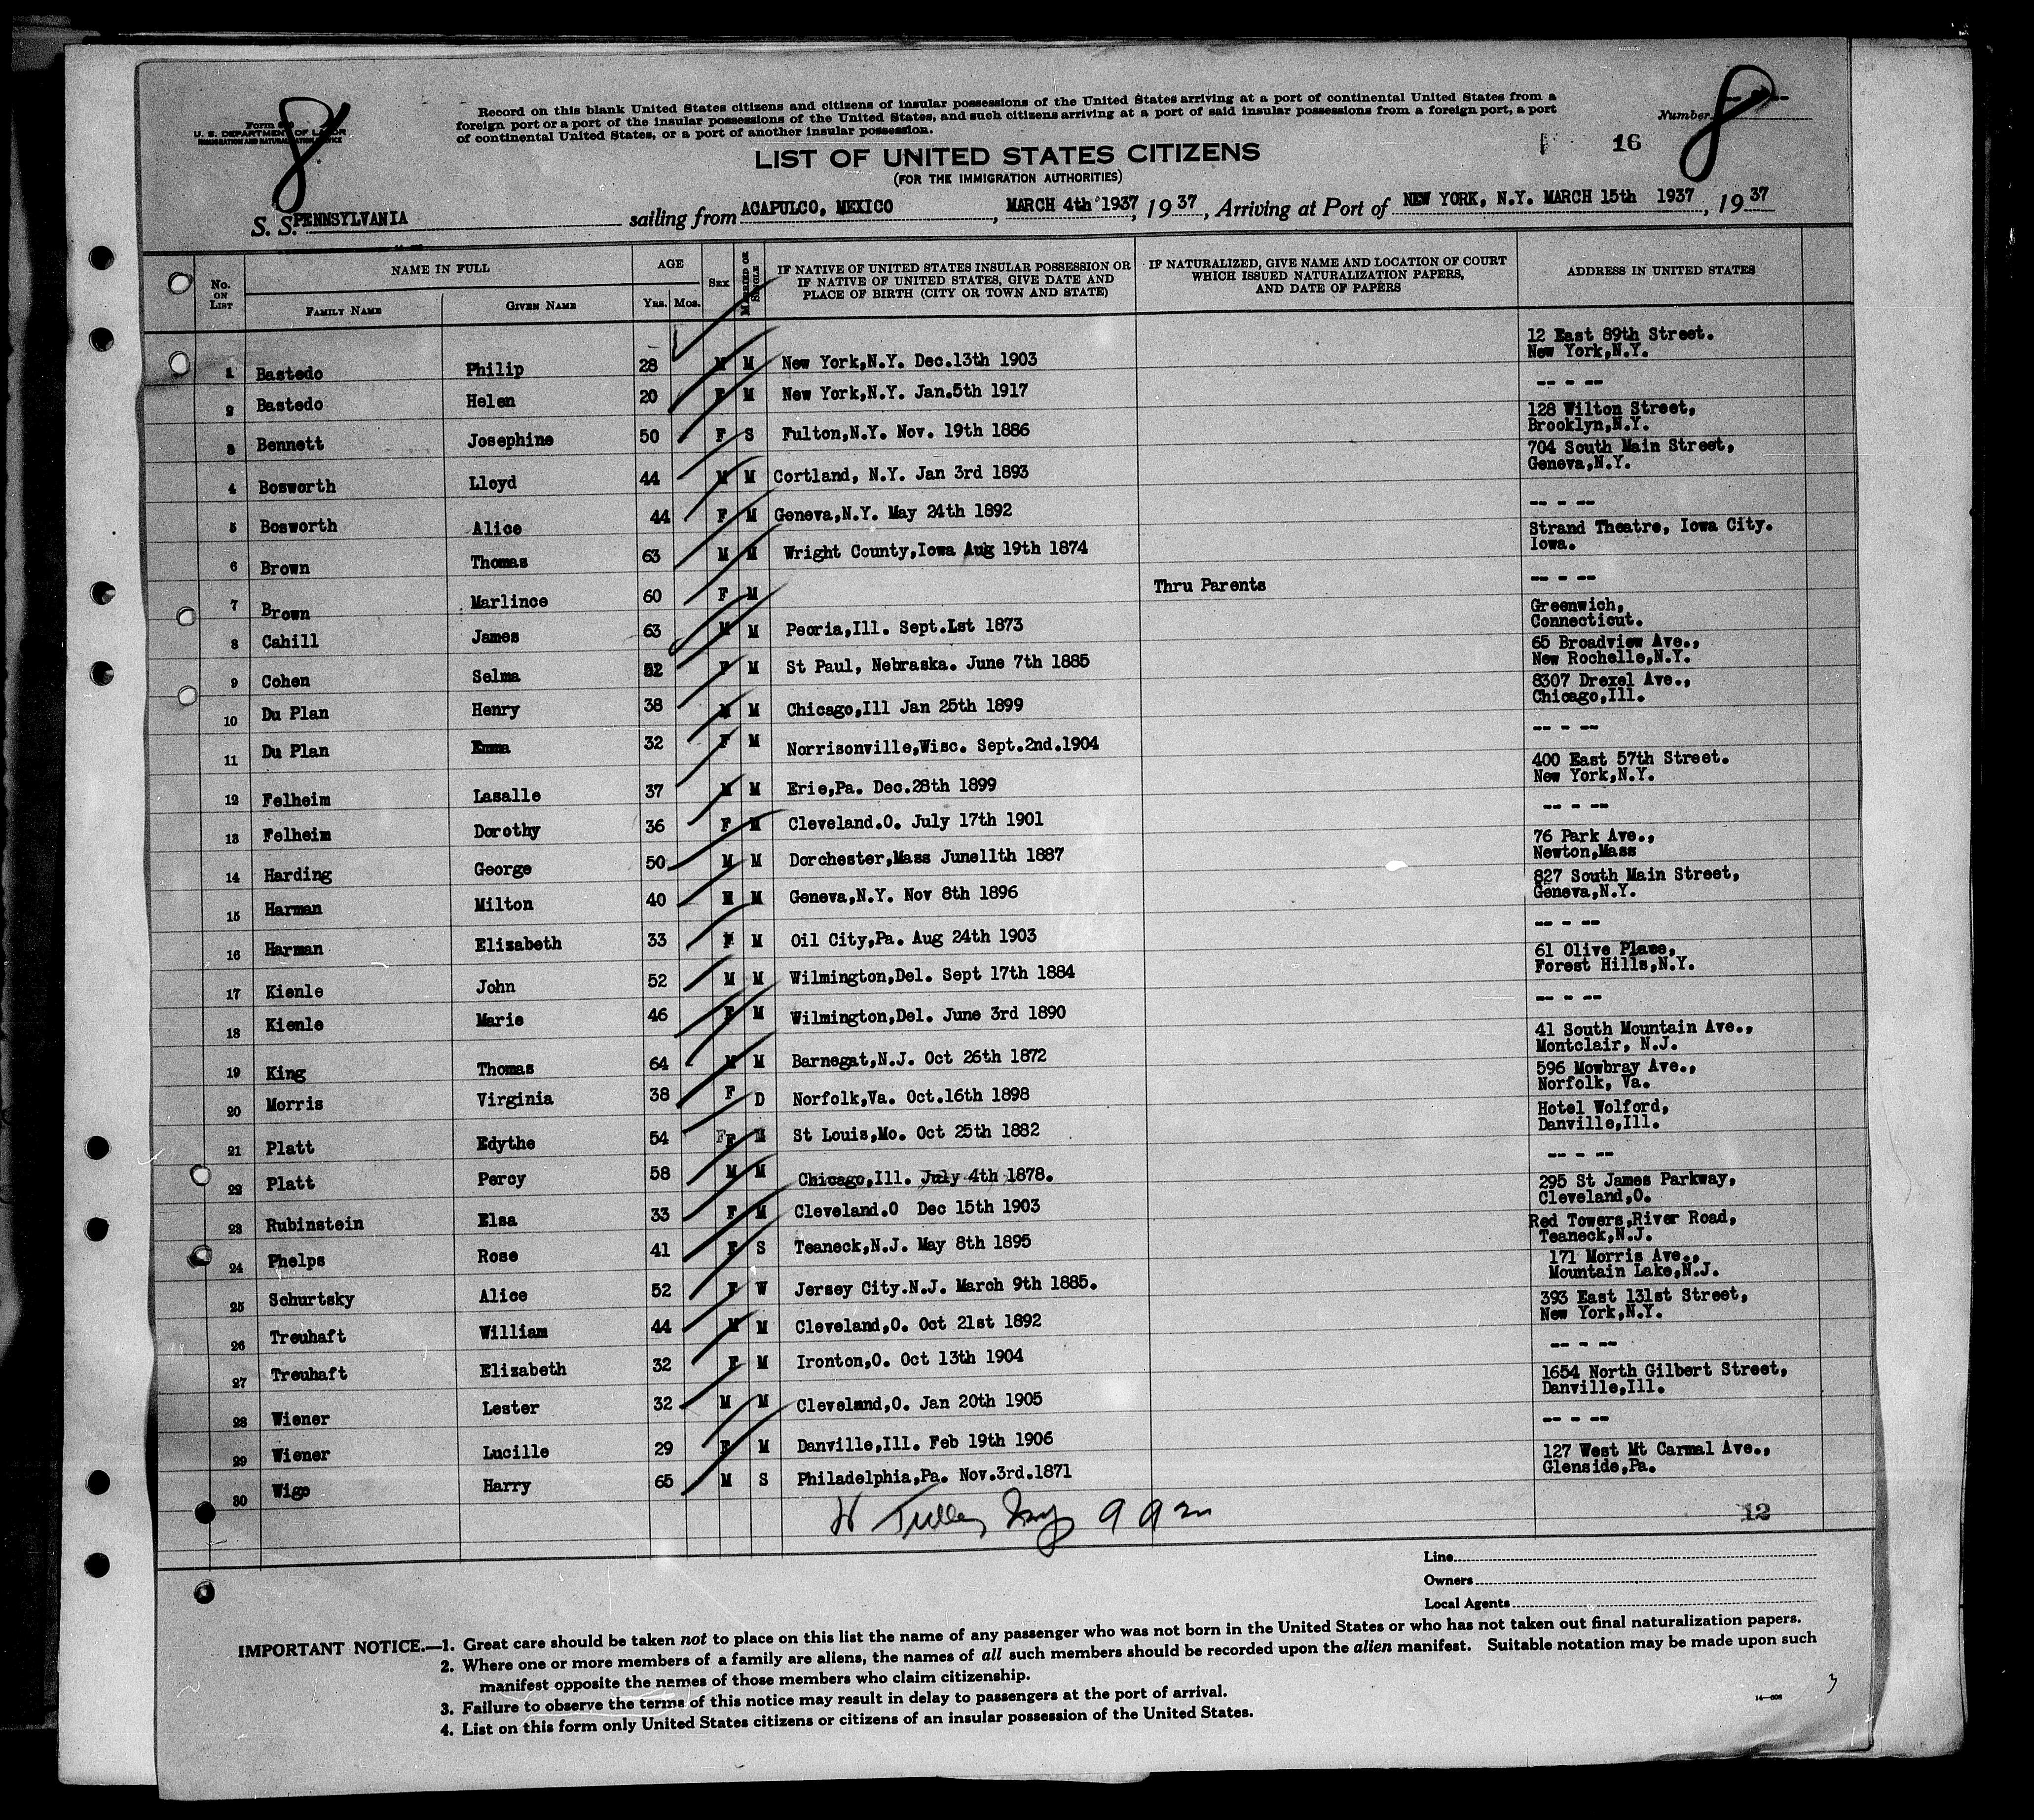 8
Form
U. S. DEPARTMENT OF LABOR
IMMIGRATION AND NATURALIZATION SERVICE
Record on this blank United States citizens and citizens of insular possessions of the United States arriving at a port of continental United States from a
foreign port or a port of the insular possessions of the United States, and such citizens arriving at a port of said insular possessions from a foreign port, a port
of continental United States, or a port of another insular possession.
Number 8
16
LIST OF UNITED STATES CITIZENS
(FOR THE IMMIGRATION AUTHORITIES)
S. S. PENNSYLVANIA sailing from ACAPULCO, MEXICO, MARCH 4th 1937, 1937, Arriving at Port of NEW YORK, N.Y. MARCH 15th 1937, 1937
No. ON LIST NAME IN FULL AGE SEX MARRIED OR SINGLE IF NATIVE OF UNITED STATES INSULAR POSSESSION OR IF NATIVE OF UNITED STATES, GIVE DATE AND PLACE OF BIRTH (CITY OR TOWN AND STATE) IF NATURALIZED, GIVE NAME AND LOCATION OF COURT WHICH ISSUED NATURALIZATION PAPERS, AND DATE OF PAPERS ADDRESS IN UNITED STATES
FAMILY NAME GIVEN NAME YRS. MOS.
1 Bastedo Philip 28 M M New York,N.Y. Dec.13th 1903 12 East 89th Street. New York,N.Y.
2 Bastedo Helen 20 F M New York,N.Y. Jan.5th 1917 -- - --
3 Bennett Josephine 50 F S Fulton,N.Y. Nov. 19th 1886 128 Wilton Street, Brooklyn,N.Y.
4 Bosworth Lloyd 44 M M Cortland, N.Y. Jan 3rd 1893 704 South Main Street, Geneva,N.Y.
5 Bosworth Alice 44 F M Geneva,N.Y. May 24th 1892 -- - --
6 Brown Thomas 63 M M Wright County,Iowa Aug 19th 1874 Strand Theatre, Iowa City. Iowa.
7 Brown Marlince 60 F M Thru Parents -- - --
8 Cahill James 63 M M Peoria,Ill. Sept.Lst 1873 Greenwich, Connecticut.
9 Cohen Selma 52 F M St Paul, Nebraska. June 7th 1885 65 Broadview Ave., New Rochelle,N.Y.
10 Du Plan Henry 38 M M Chicago,Ill Jan 25th 1899 8307 Drexel Ave., Chicago,Ill.
11 Du Plan Emma 32 F M Norrisonville,Wisc. Sept.2nd.1904 -- - --
12 Felheim Lasalle 37 M M Erie,Pa. Dec.28th 1899 400 East 57th Street. New York,N.Y.
13 Felheim Dorothy 36 F M Cleveland.O. July 17th 1901 -- - --
14 Harding George 50 M M Dorchester,Mass June11th 1887 76 Park Ave., Newton,Mass
15 Harman Milton 40 M M Geneva,N.Y. Nov 8th 1896 827 South Main Street, Geneva,N.Y.
16 Harman Elizabeth 33 F M Oil City,Pa. Aug 24th 1903 -- - --
17 Kienle John 52 M M Wilmington,Del. Sept 17th 1884 61 Olive Place, Forest Hills,N.Y.
18 Kienle Marie 46 F M Wilmington,Del. June 3rd 1890 -- - --
19 King Thomas 64 M M Barnegat,N.J. Oct 26th 1872 41 South Mountain Ave., Montclair, N.J.
20 Morris Virginia 38 F D Norfolk,Va. Oct.16th 1898 596 Mowbray Ave., Norfolk, Va.
21 Platt Edythe 54 F M St Louis,Mo. Oct 25th 1882 Hotel Wolford, Danville,Ill.
22 Platt Percy 58 M M Chicago,Ill. July 4th 1878. -- - --
23 Rubinstein Elsa 33 F M Cleveland.O Dec 15th 1903 295 St James Parkway, Cleveland,O.
24 Phelps Rose 41 F S Teaneck,N.J. May 8th 1895 Red Towers,River Road, Teaneck,N.J.
25 Schurtsky Alice 52 F W Jersey City.N.J. March 9th 1885. 171 Morris Ave., Mountain Lake,N.J.
26 Treuhaft William 44 M M Cleveland,O. Oct 21st 1892 393 East 131st Street, New York,N.Y.
27 Treuhaft Elizabeth 32 F M Ironton,O. Oct 13th 1904 -- - --
28 Wiener Lester 32 M M Cleveland,O. Jan 20th 1905 1654 North Gilbert Street, Danville,Ill.
29 Wiener Lucille 29 F M Danville,Ill. Feb 19th 1906 -- - --
30 Wigo Harry 65 M S Philadelphia,Pa. Nov.3rd.1871 127 West Mt Carmal Ave., Glenside,Pa.
12
Line
Owners
Local Agents
IMPORTANT NOTICE.—1. Great care should be taken not to place on this list the name of any passenger who was not born in the United States or who has not taken out final naturalization papers.
2. Where one or more members of a family are aliens, the names of all such members should be recorded upon the alien manifest. Suitable notation may be made upon such
manifest opposite the names of those members who claim citizenship.
3. Failure to observe the terms of this notice may result in delay to passengers at the port of arrival.
4. List on this form only United States citizens or citizens of an insular possession of the United States.
14—608
3